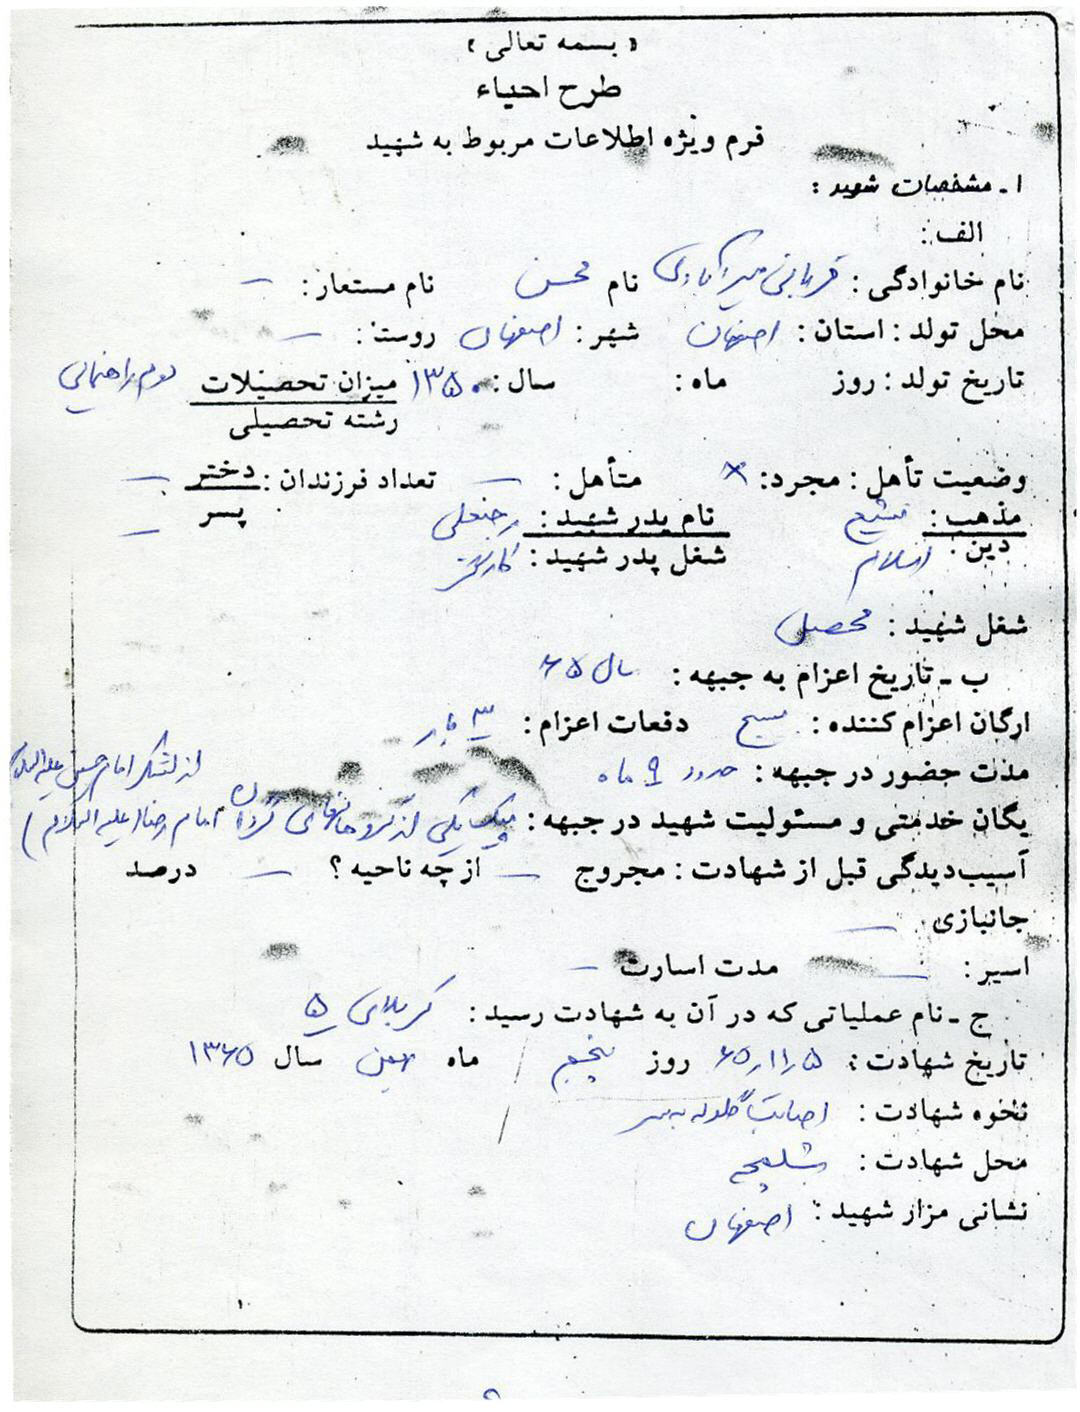 « بسمه تعالی »
طرح احیاء
فرم ویژه اطلاعات مربوط به شهید
۱ ـ مشخصات شهید :
الف :
نام خانوادگی : قربانی میرآبادی نام محسن نام مستعار : —
محل تولد : استان : اصفهان شهر : اصفهان روستا : —
تاریخ تولد : روز ماه : سال : ۱۳۵۰ میزان تحصیلات دوم راهنمایی
رشته تحصیلی
وضعیت تأهل : مجرد : × متأهل : — تعداد فرزندان : دختر —
پسر —
مذهب : تشیع نام پدر شهید : رجبعلی
دین : اسلام شغل پدر شهید : کارگر
شغل شهید : محصل
ب ـ تاریخ اعزام به جبهه : سال ۶۵
ارگان اعزام کننده : بسیج دفعات اعزام : ۳ بار
مدت حضور در جبهه : حدود ۹ ماه
از لشکر امام حسین علیه السلام
یگان خدمتی و مسئولیت شهید در جبهه : پیک یکی از گروهانهای گردان امام رضا (علیه السلام)
آسیب‌دیدگی قبل از شهادت : مجروح — از چه ناحیه ؟ — درصد
جانبازی —
اسیر : — مدت اسارت —
ج ـ نام عملیاتی که در آن به شهادت رسید : کربلای ۵
تاریخ شهادت : ۶۵/۱۱/۵ روز پنجم / ماه بهمن سال ۱۳۶۵
نحوه شهادت : اصابت گلوله به سر /
محل شهادت : شلمچه
نشانی مزار شهید : اصفهان
۱